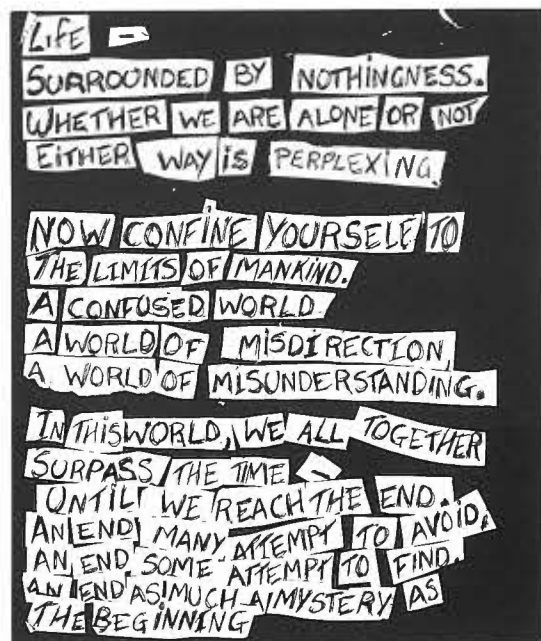 LIFE –
SURROUNDED BY NOTHINGNESS.
WHETHER WE ARE ALONE OR NOT
EITHER WAY IS PERPLEXING.
NOW CONFINE YOURSELF TO
THE LIMITS OF MANKIND.
A CONFUSED WORLD
A WORLD OF MISDIRECTION,
A WORLD OF MISUNDERSTANDING.
IN THIS WORLD, WE ALL TOGETHER
SURPASS THE TIME –
UNTIL WE REACH THE END.
AN END MANY ATTEMPT TO AVOID,
AN END SOME ATTEMPT TO FIND.
AN END AS MUCH A MYSTERY AS
THE BEGINNING